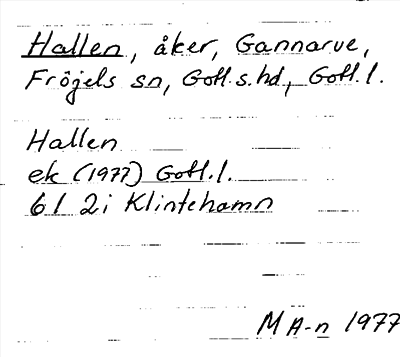 Hallen, åker, Gannarve,
Fröjels sn, Gotl. s. hd, Gotl. l.
Hallen
ek (1977) Gotl. l.
6 I 2i Klintehamn
MA-n 1977